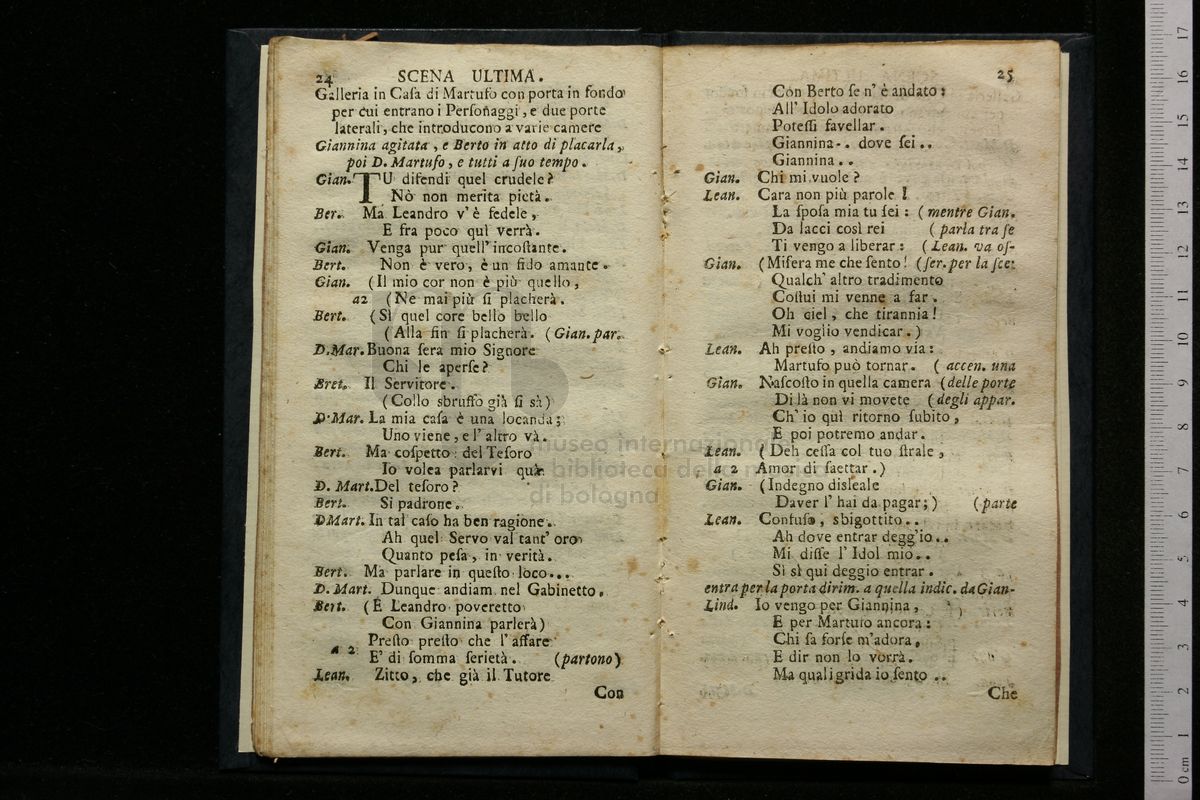 24 SCENA ULTIMA.
Galleria in Caſa di Martufo con porta in fondo
per cui entrano i Perſonaggi, e due porte
laterali, che introducono a varie camere
Giannina agitata, e Berto in atto di placarla,
poi D. Martufo, e tutti a ſuo tempo.
Gian. TU difendi quel crudele?
Nò non merita pietà.
Ber. Ma Leandro v'è fedele,
E fra poco quì verrà.
Gian. Venga pur quell' incoſtante.
Bert. Non è vero, è un fido amante.
Gian. (Il mio cor non è più quello,
a2 (Nè mai più ſi placherà.
Bert. (Sì quel core bello bello
(Alla fin ſi placherà. (Gian. par.
D.Mar. Buona ſera mio Signore
Chi le aperſe?
Bret. Il Servitore.
(Collo sbruffo già ſi sà)
D.Mar. La mia caſa è una locanda;
Uno viene, e l' altro và.
Bert. Ma coſpetto: del Teſoro
Io volea parlarvi quà.
D. Mart. Del teſoro?
Bert. Si padrone.
DMart. In tal caſo ha ben ragione.
Ah quel Servo val tant' oro
Quanto peſa, in verità.
Bert. Ma parlare in queſto loco...
D. Mart. Dunque andiam nel Gabinetto,
Bert. (E Leandro poveretto
Con Giannina parlerà)
Preſto preſto che l' affare
a 2
E' di ſomma ſerietà. (partono)
Lean. Zitto, che già il Tutore
Con
25
Con Berto ſe n' è andato:
All' Idolo adorato
Poteſſi favellar.
Giannina.. dove ſei..
Giannina..
Gian. Chi mi vuole?
Lean. Cara non più parole!
La ſpoſa mia tu ſei: (mentre Gian.
Da lacci così rei (parla tra ſe
Ti vengo a liberar: (Lean. va oſ-
Gian. (Miſera me che ſento! (ſer. per la ſce:
Qualch' altro tradimento
Coſtui mi venne a far.
Oh ciel, che tirannia!
Mi voglio vendicar.)
Lean. Ah preſto, andiamo via:
Martufo può tornar. (accen. una
Gian. Naſcoſto in quella camera (delle porte
Di là non vi movete (degli appar.
Ch' io quì ritorno ſubito,
E poi potremo andar.
Lean. (Deh ceſſa col tuo ſtrale,
a 2 Amor di ſaettar.)
Gian. (Indegno disleale
Daver l' hai da pagar;) (parte
Lean. Confuſo, sbigottito..
Ah dove entrar degg'io..
Mi diſſe l' Idol mio..
Sì sì qui deggio entrar.
entra per la porta dirim. a quella indic. da Gian-
Lind. Io vengo per Giannina,
E per Martufo ancora:
Chi ſa forſe m'adora,
E dir non lo vorrà.
Ma quali grida io ſento..
Che
museo internazionale
e biblioteca della musica
di bologna
17
16
15
14
13
12
11
10
9
8
7
6
5
4
3
2
1
0 cm